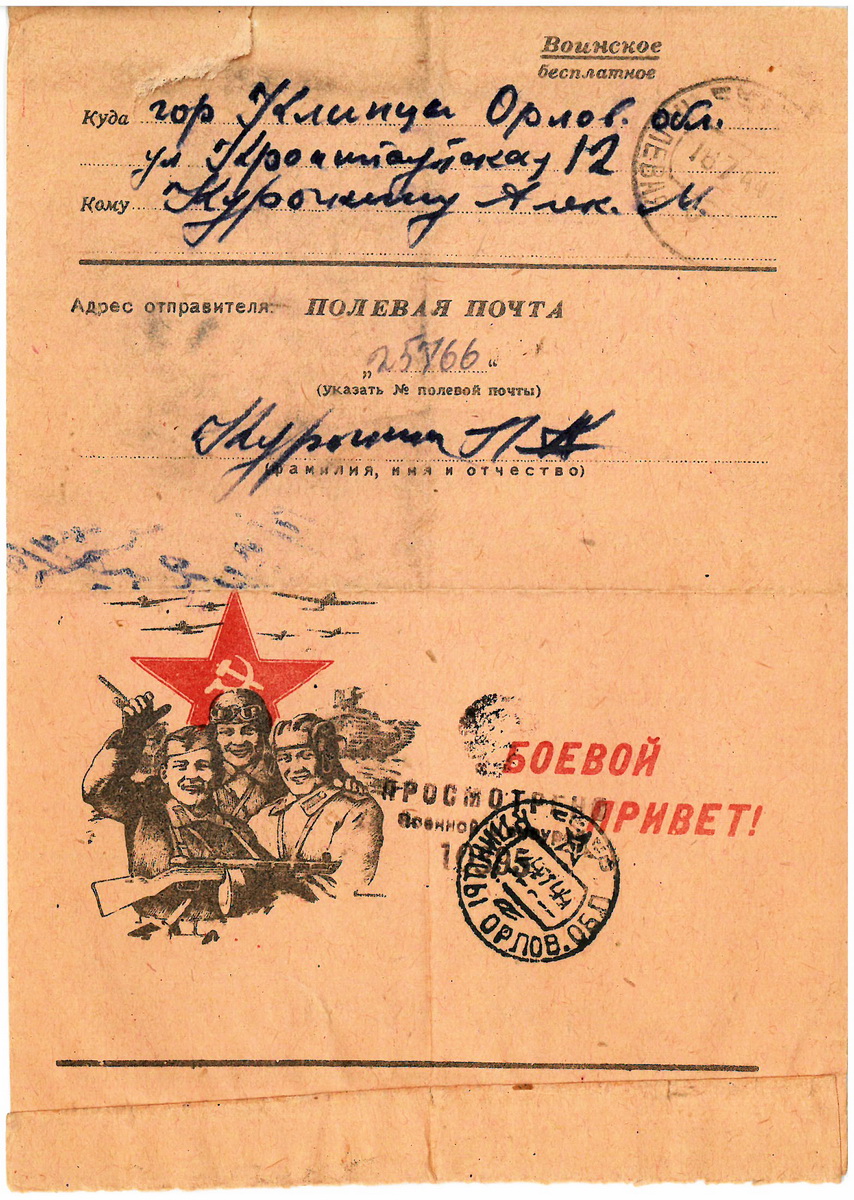 Воинское
бесплатное
Куда гор Клинцы Орлов. обл.
ул Кронштадтская 12
Кому Курочкину Алек. М.
18 7 44
Адрес отправителя: ПОЛЕВАЯ ПОЧТА
„25766“
(указать № полевой почты)
Курочкина Л А
(фамилия, имя и отчество)
БОЕВОЙ
ПРИВЕТ!
ПРОСМОТРЕНО
Военной
КЛИНЦЫ
ОРЛОВ. ОБЛ